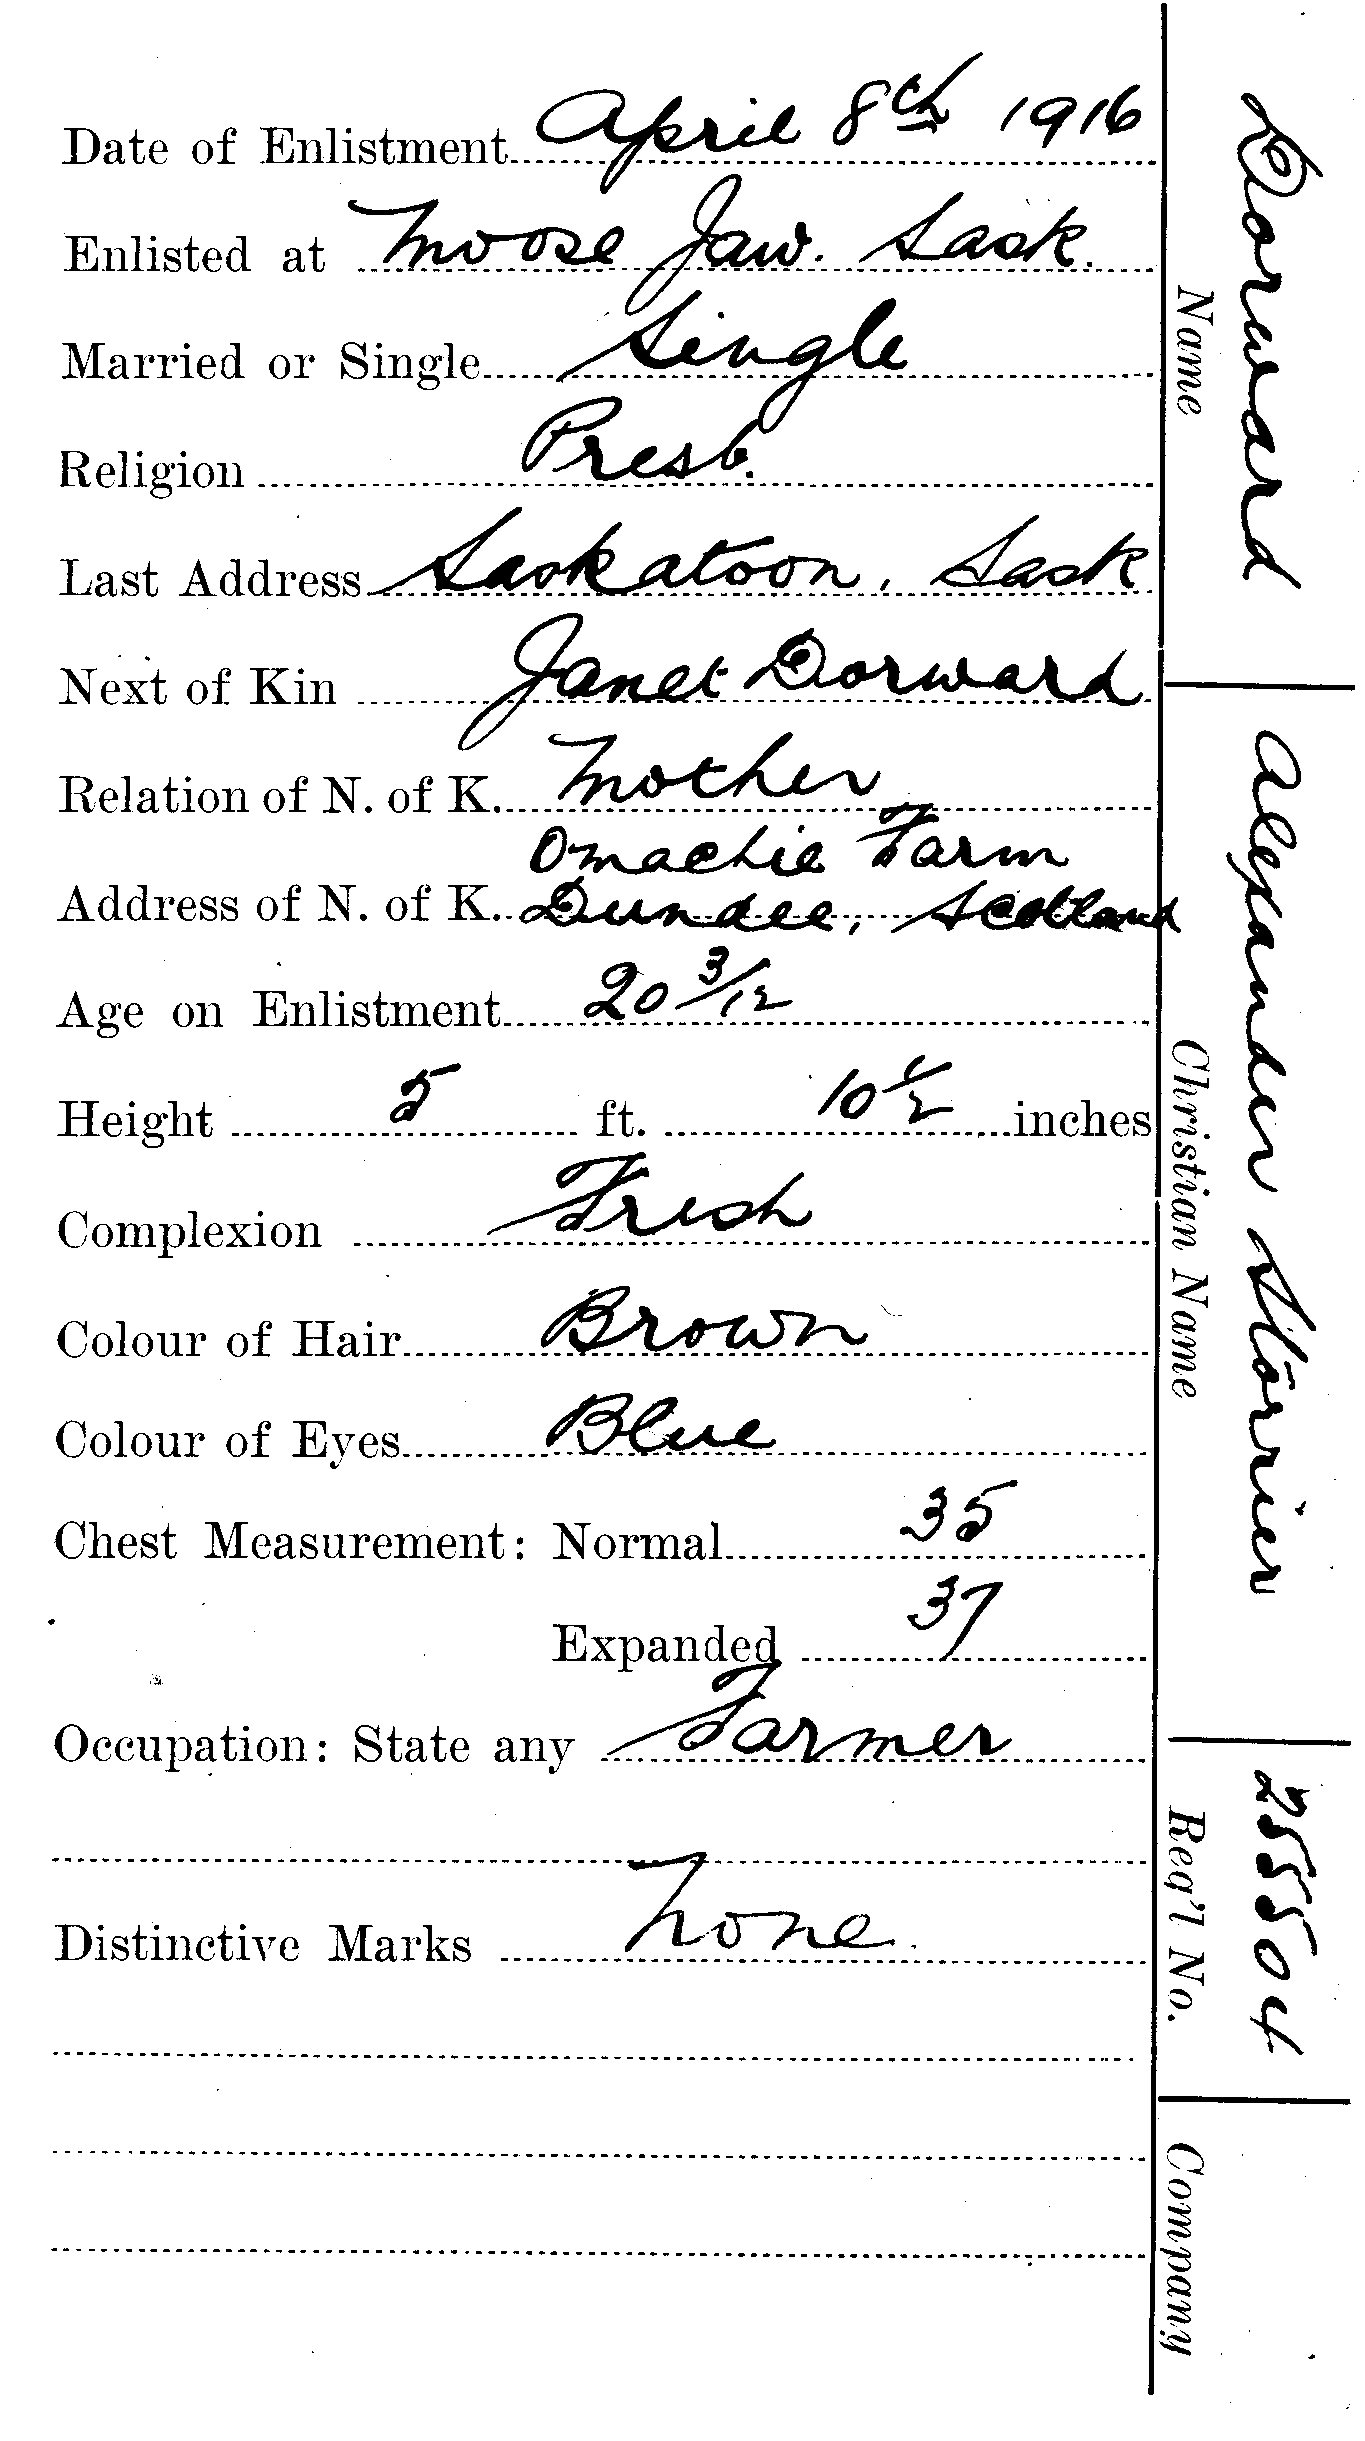 Date of Enlistment April 8th 1916
Enlisted at Moose Jaw. Sask.
Married or Single Single
Religion Presb.
Last Address Saskatoon, Sask
Next of Kin Janet Dorward
Relation of N. of K. Mother
Omachie Farm
Address of N. of K. Dundee, Scotland
Age on Enlistment 20 3/12
Height 5 ft. 10 1/2 inches
Complexion Fresh
Colour of Hair Brown
Colour of Eyes Blue
Chest Measurement: Normal 35
Expanded 37
Occupation: State any Farmer
Distinctive Marks None.
Dorward
Name
Alexander Storrier
Christian Name
255504
Reg'l No.
Company